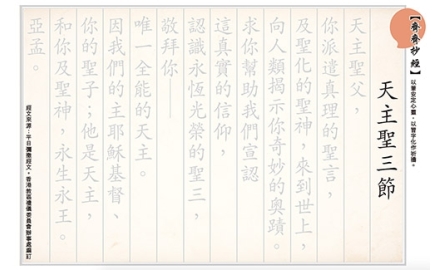 【齊齊抄經】
以筆安定心靈，以習字化作祈禱。
天主聖三節
天主聖父，
你派遣真理的聖言，
及聖化的聖神，來到世上，
向人類揭示你奇妙的奧蹟。
求你幫助我們宣認
這真實的信仰，
認識永恆光榮的聖三，
敬拜你——
唯一全能的天主。
因我們的主耶穌基督、
你的聖子；他是天主，
和你及聖神，永生永王。
亞孟。
經文來源：平日彌撒經文，香港教區禮儀委員會辦事處編訂